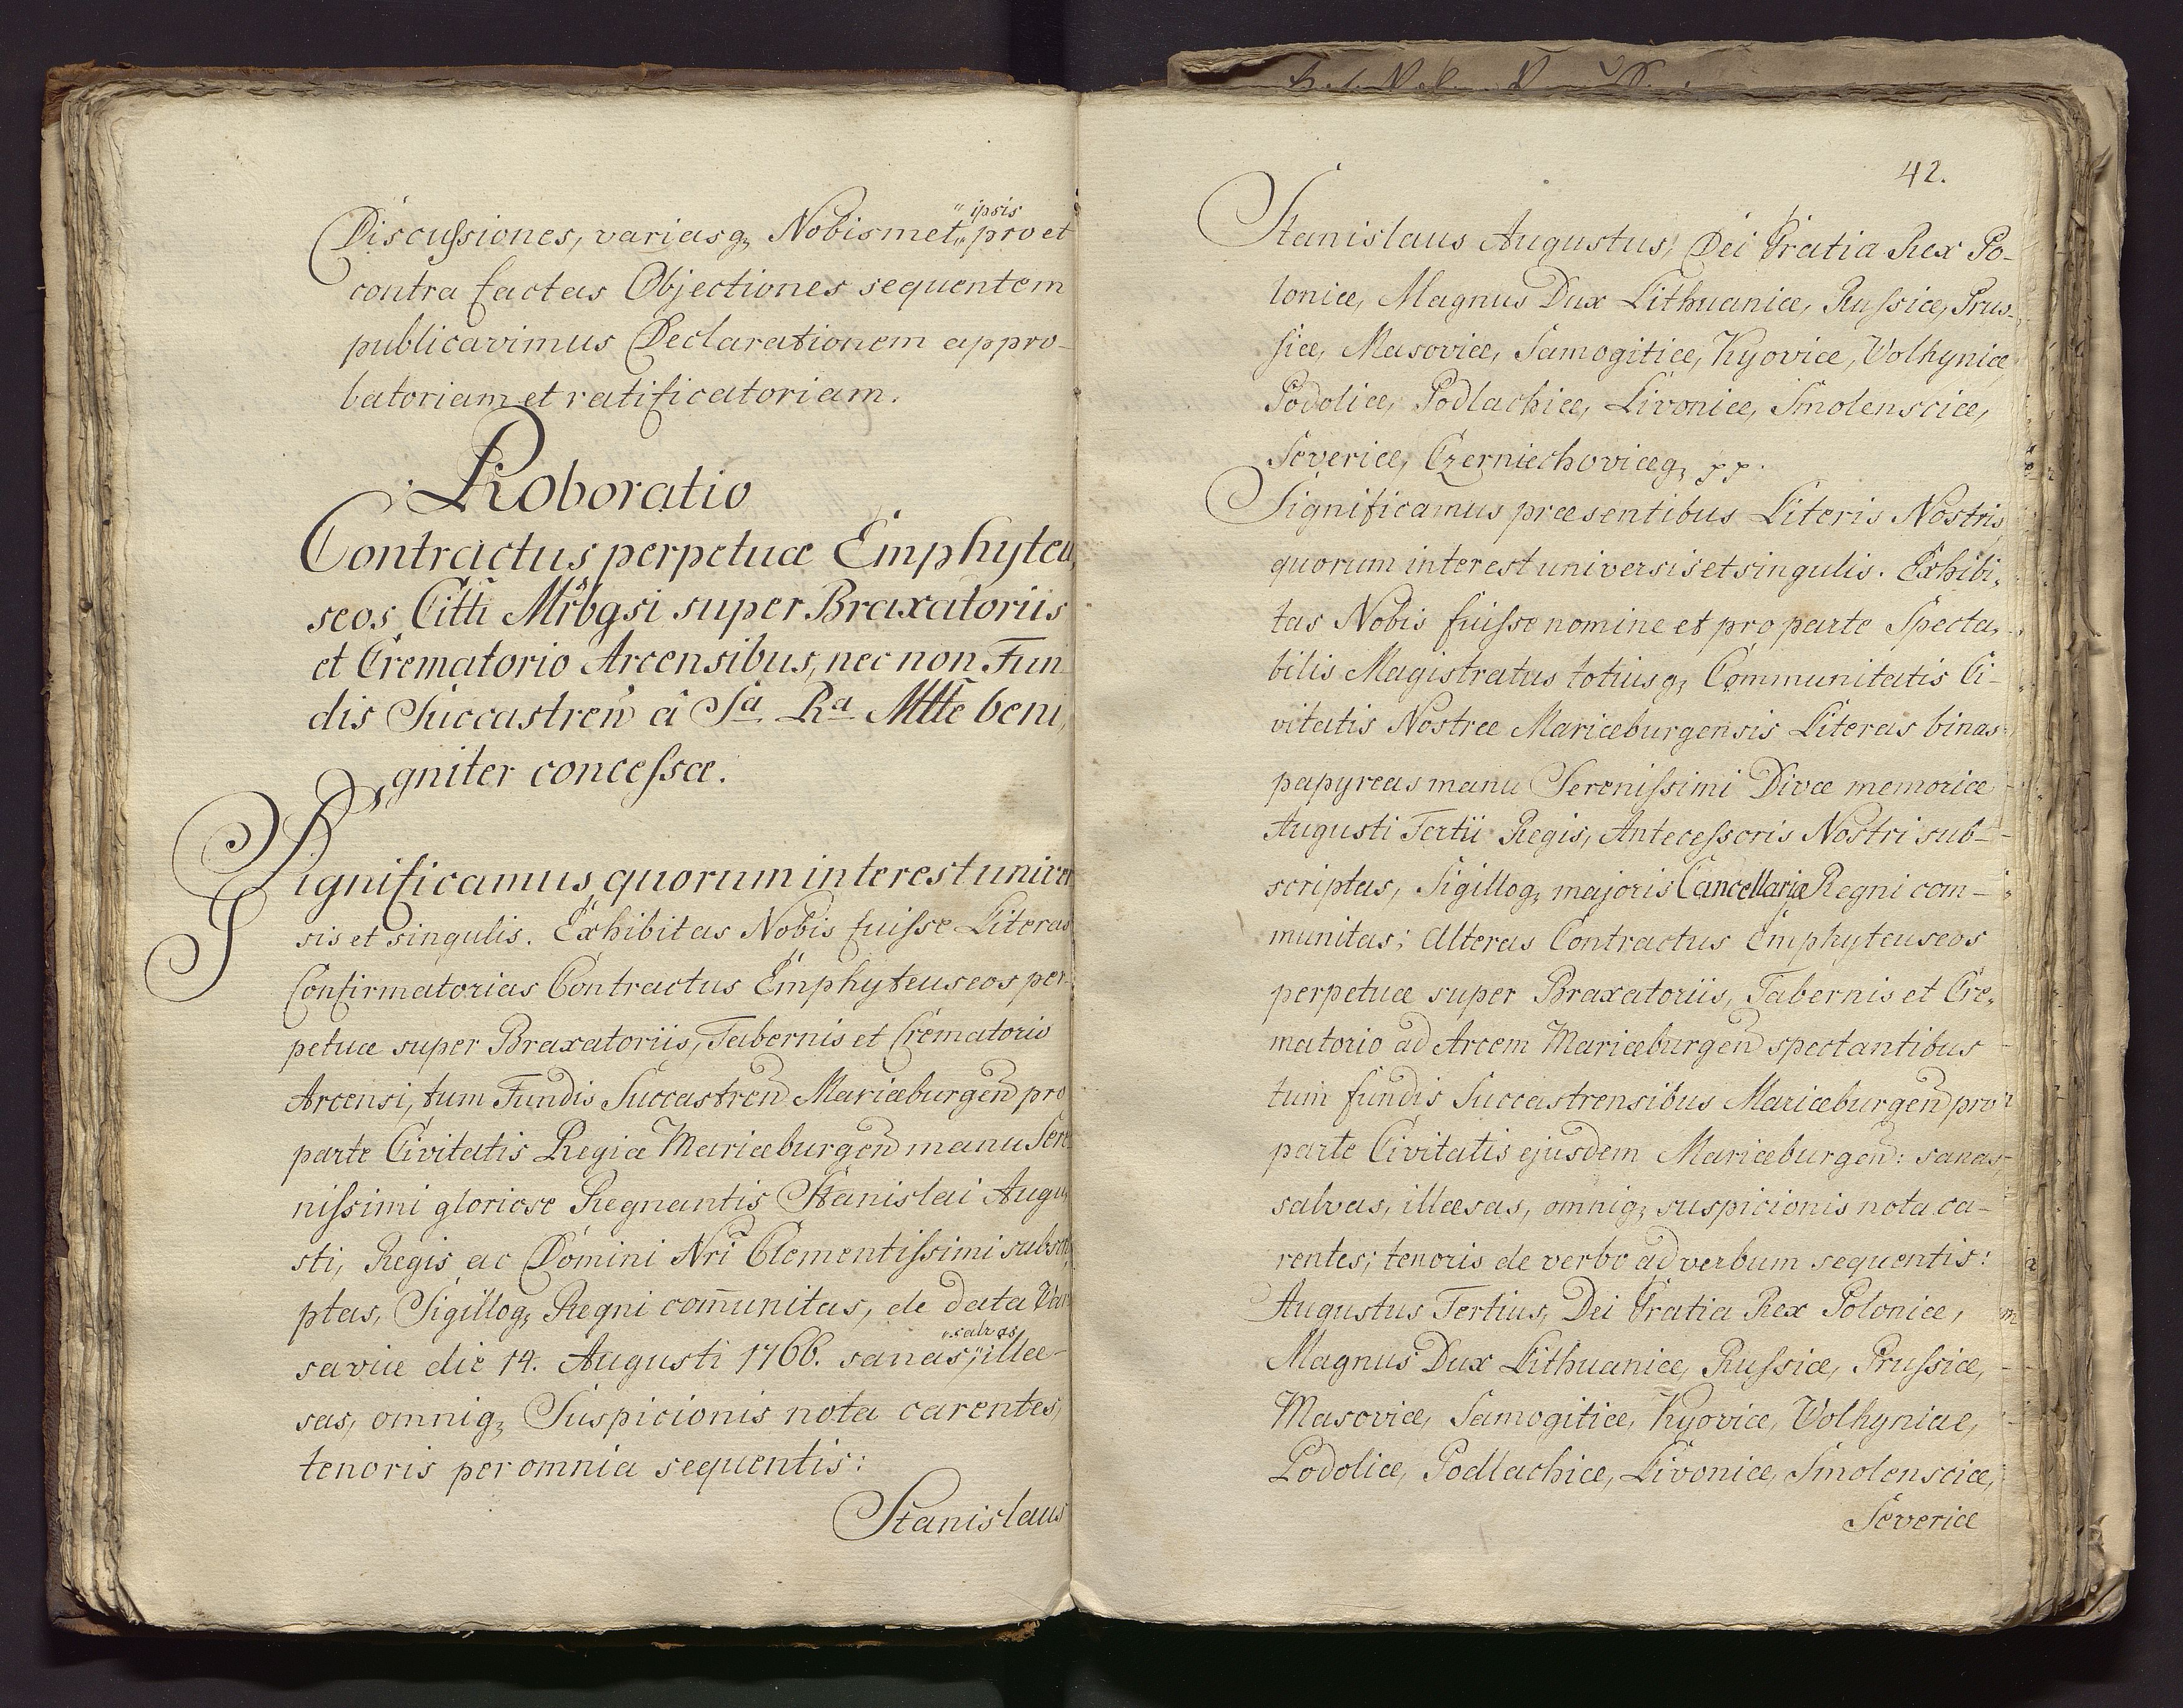 Discussiones, variasq, Nobismet ipsis pro et
contra factas Objectiones sequentem
publicavimus Declarationem appro-
batoriam et ratificatoriam.
Roboratio
Contractus perpetuæ Emphyteu
seos Citti Mrbgsi super Braxatoriis
et Crematorio Arcensibus, nec non Fun
dis Succastren â Sa Ra Mtte beni,
gniter concessæ.
Significamus quorum interest univer
sis et singulis. Exhibitas Nobis fuisse Literas
Confirmatorias Contractus Emphyteuseos per-
petuæ super Braxatoriis, Tabernis et Crematorio
Arcensi, tum Fundis Succastren Mariæburgen pro
parte Civitatis Regiæ Mariæburgen manu Sere
nissimi gloriose Regnantis Stanislai Augu,
sti, Regis ac Domini Nri Clementissimi subscri,
ptas, Sigilloq, Regni com̄unitas, de data Var
saviæ die 14. Augusti 1766. sanas, salvas, illæ-
sas, omniq, Suspicionis nota carentes,
tenoris per omnia sequentis:
Stanislaus
42.
Stanislaus Augustus, Dei Gratia Rex Po-
loniæ, Magnus Dux Lithuaniæ, Russiæ, Prus-
siæ, Masoviæ, Samogitiæ, Kyoviæ, Volhyniæ
Podoliæ, Podlachiæ, Livoniæ, Smolensciæ,
Severiæ, Czerniechoviæq,
Significamus præsentibus Literis Nostris
quorum interest universis et singulis. Exhibi,
tas Nobis fuisse nomine et pro parte Specta,
bilis Magistratus totiusq, Communitatis Ci-
vitatis Nostræ Mariæburgensis Literas binas
papyreas manu Serenissimi Divæ memoriæ
Augusti Tertii Regis, Antecessoris Nostri sub-
scriptas, Sigilloq, majoris Cancellariæ Regni com-
munitas; alteras Contractus Emphyteuseos
perpetuæ super Braxatoriis, Tabernis et Cre,
matorio ad Arcem Mariæburgen spectantibus
tum fundis Succastrensibus Mariæburgen pro
parte Civitatis ejusdem Mariæburgen: sanas,
salvas, illæsas, omniq, suspicionis nota ca-
rentes; tenoris de verbo ad verbum sequentis:
Augustus Tertius, Dei Gratia Rex Poloniæ,
Magnus Dux Lithuaniæ, Russiæ, Prussiæ,
Masoviæ, Samogitiæ, Kyoviæ, Volhyniae,
Podoliæ, Podlachiæ, Livoniæ, Smolensciæ,
Severiæ